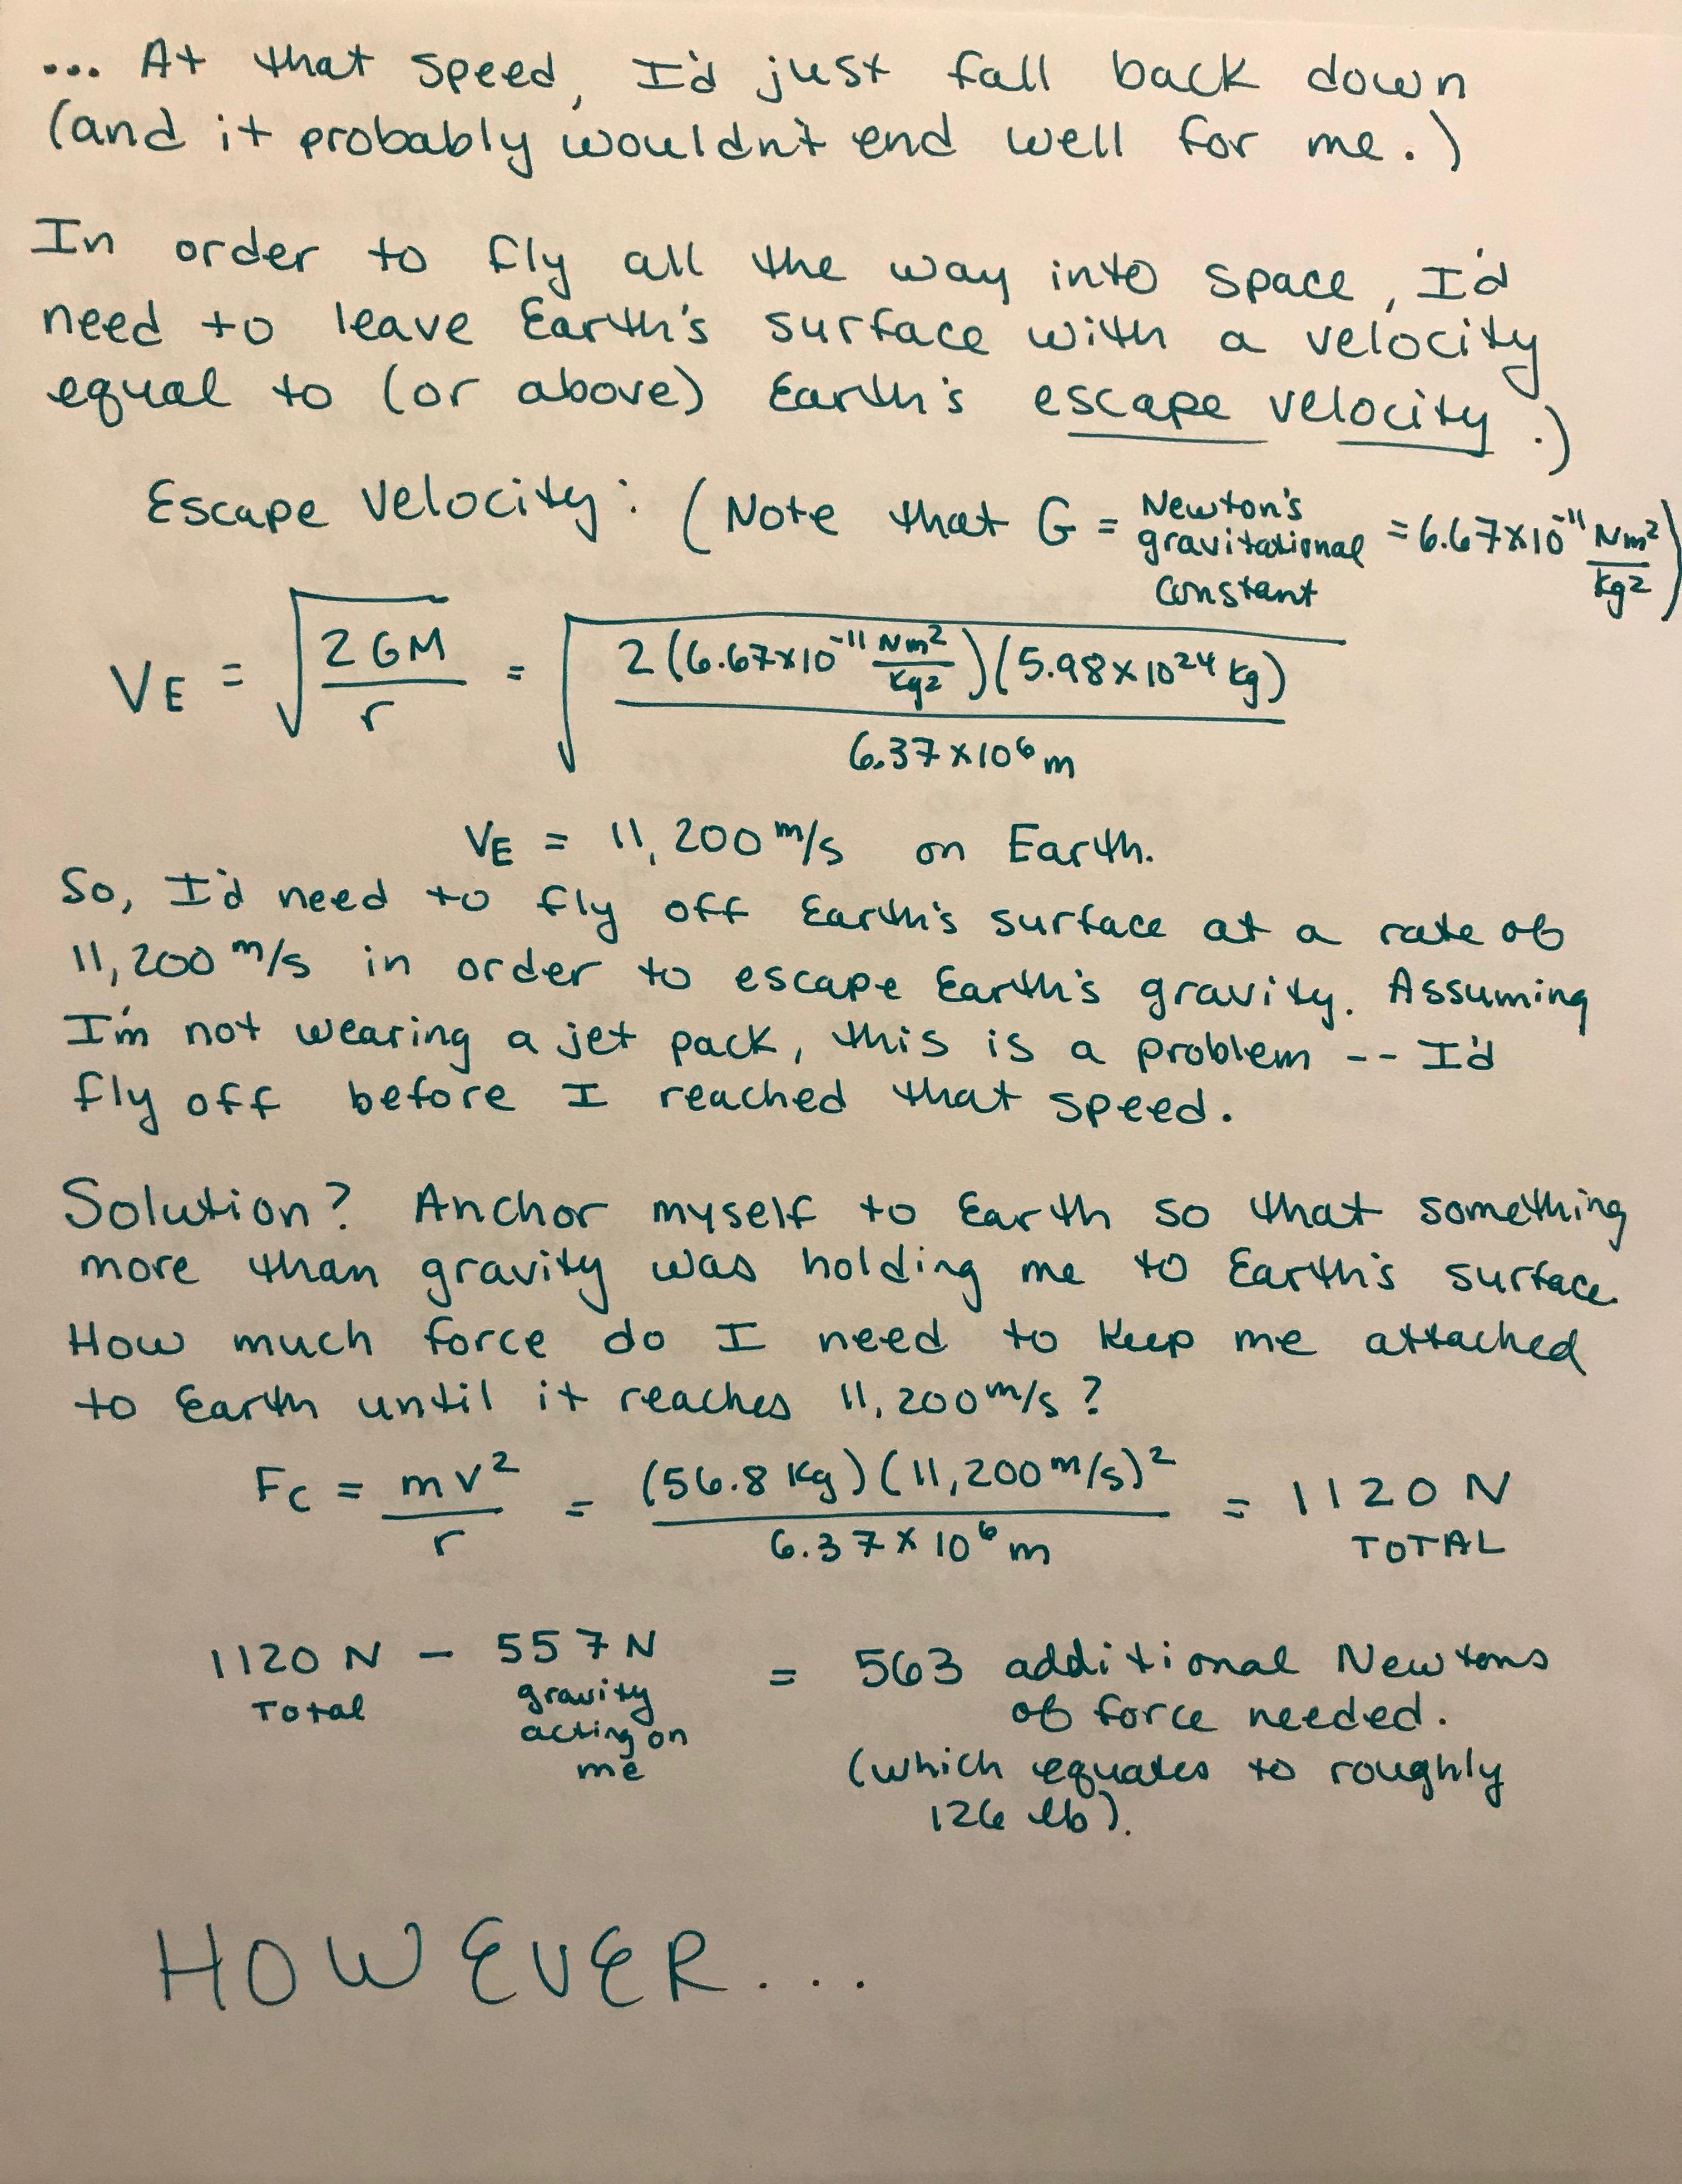 ... At that speed, I'd just fall back down
(and it probably wouldn't end well for me.)
In order to fly all the way into space, I'd
need to leave Earth's surface with a velocity
equal to (or above) Earth's escape velocity.)
Escape Velocity: (Note that G = Newton's gravitational constant = 6.67×10⁻¹¹ Nm²/kg²)
VE = √(2GM/r) = √(2(6.67×10⁻¹¹ Nm²/kg²)(5.98×10²⁴ kg)/6.37×10⁶ m)
VE = 11,200 m/s on Earth.
So, I'd need to fly off Earth's surface at a rate of
11,200 m/s in order to escape Earth's gravity. Assuming
I'm not wearing a jet pack, this is a problem -- I'd
fly off before I reached that speed.
Solution? Anchor myself to Earth so that something
more than gravity was holding me to Earth's surface.
How much force do I need to keep me attached
to Earth until it reaches 11,200 m/s?
Fc = mv²/r = (56.8 kg)(11,200 m/s)²/6.37×10⁶ m = 1120 N TOTAL
1120 N Total − 557 N gravity acting on me = 563 additional Newtons
of force needed.
(which equates to roughly
126 lb).
HOWEVER...